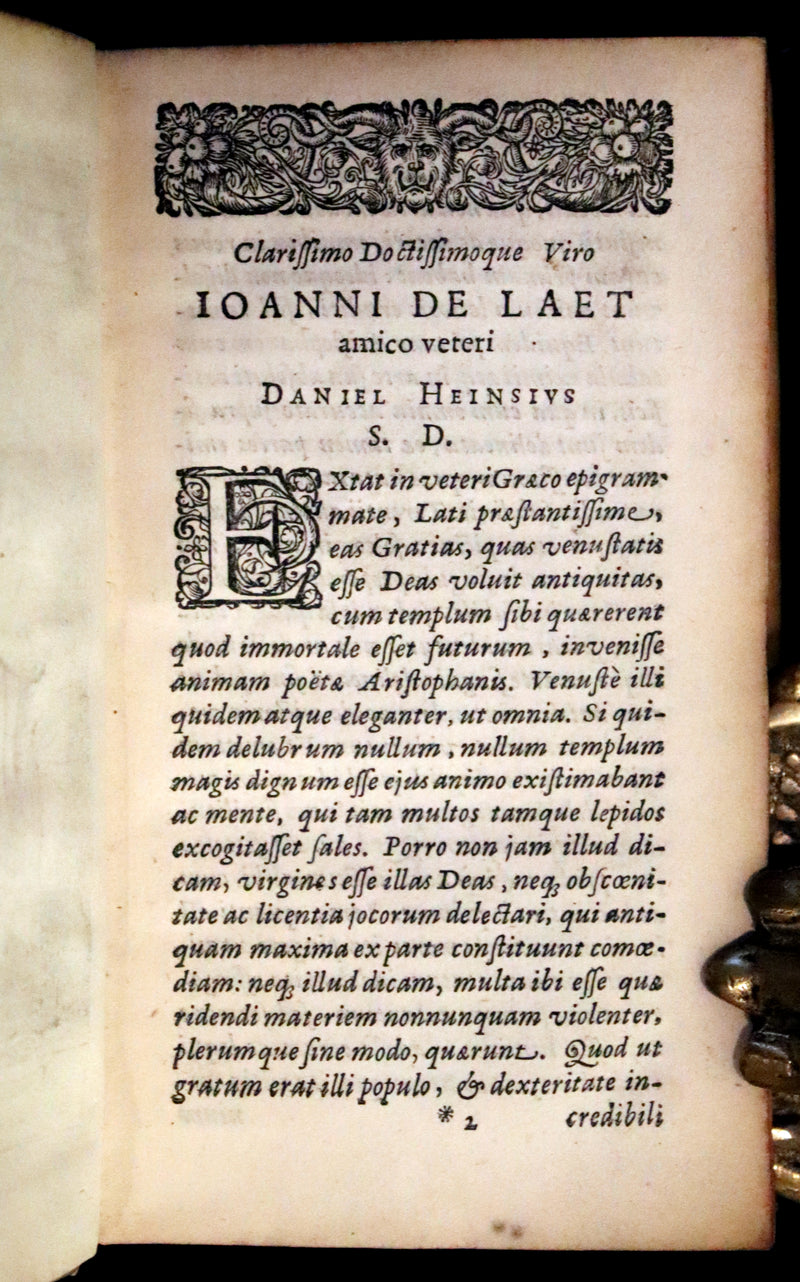 Clariſſimo Doctiſſimoque Viro
IOANNI DE LAET
amico veteri
DANIEL HEINSIVS
S. D.
EXtat in veteri Græco epigram-
mate, Lati præſtantiſſime,
eas Gratias, quas venuſtatis
eſſe Deas voluit antiquitas,
cum templum ſibi quærerent
quod immortale eſſet futurum, inveniſſe
animam poëtæ Ariſtophanis. Venuſtè illi
quidem atque eleganter, ut omnia. Si qui-
dem delubrum nullum, nullum templum
magis dignum eſſe ejus animo exiſtimabant
ac mente, qui tam multos tamque lepidos
excogitaſſet ſales. Porro non jam illud di-
cam, virgines eſſe illas Deas, neq; obſcœni-
tate ac licentia jocorum delectari, qui anti-
quam maxima ex parte conſtituunt comœ-
diam: neq; illud dicam, multa ibi eſſe quæ
ridendi materiem nonnunquam violenter,
plerumque ſine modo, quærunt. Quod ut
gratum erat illi populo, & dexteritate in-
* 2 credibili